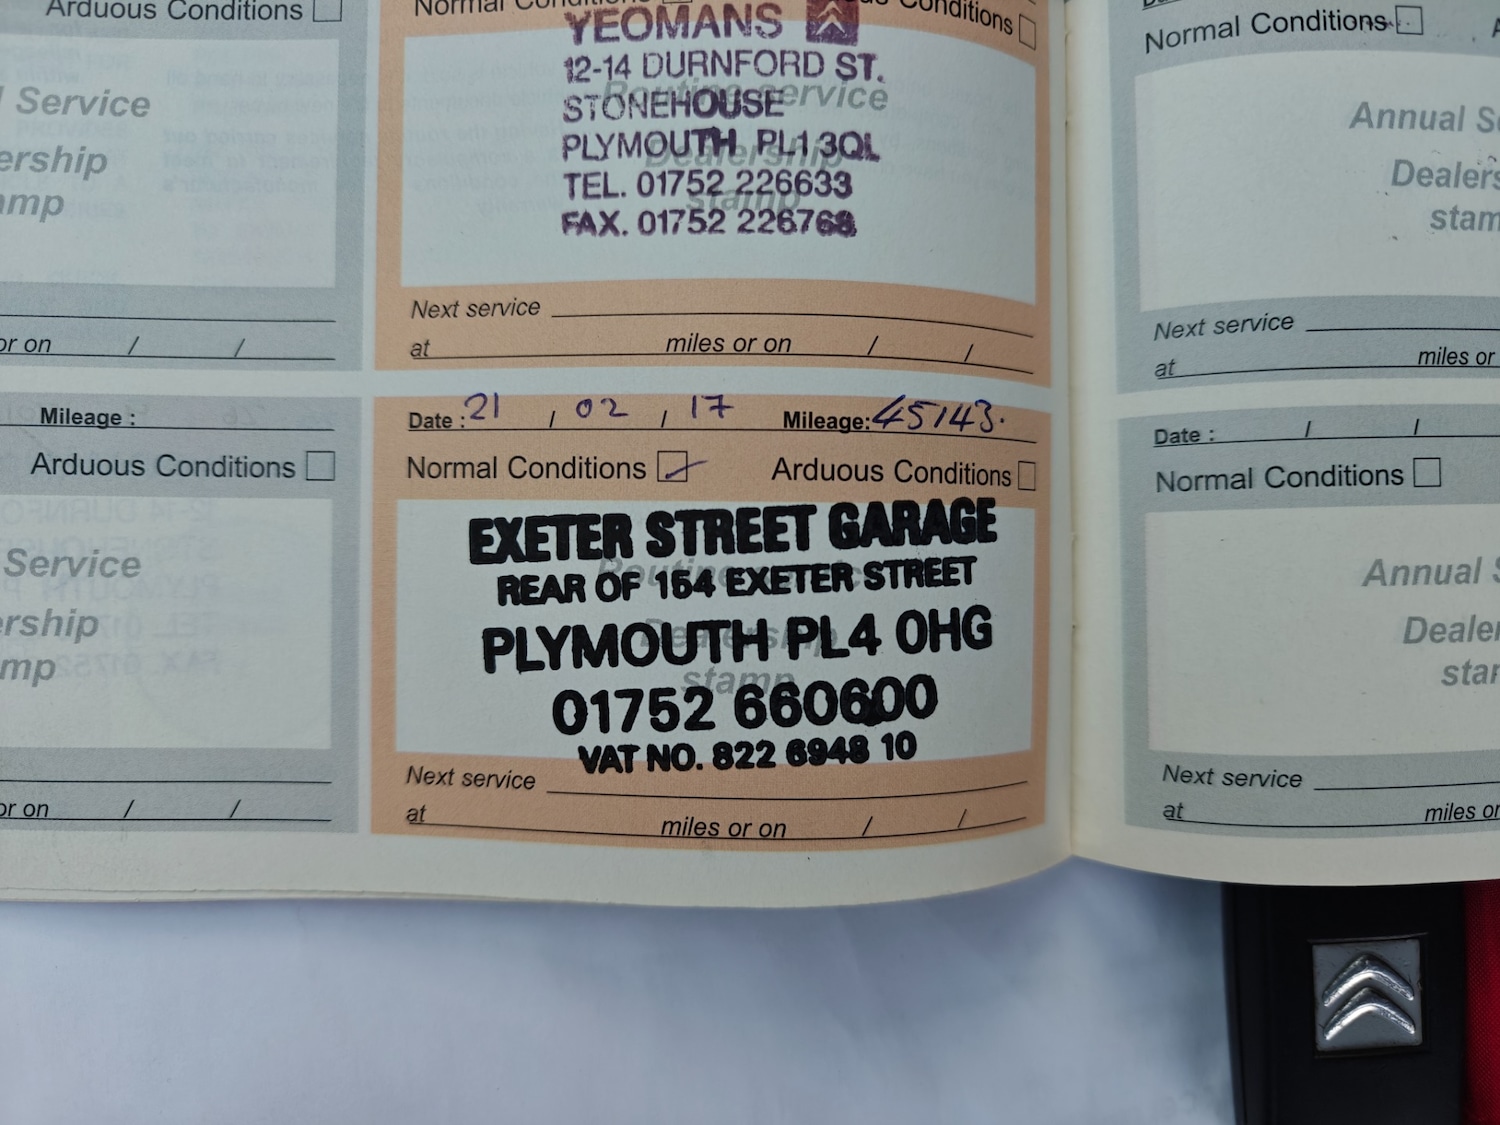 Arduous Conditions
Service
ership
amp
or on / /
Mileage :
Arduous Conditions
Service
ership
mp
or on / /
Normal Conditions Conditions
YEOMANS
12-14 DURNFORD ST.
STONEHOUSE
PLYMOUTH PL1 3QL
TEL. 01752 226633
FAX. 01752 226768
Routine service
Dealership
stamp
Next service
at miles or on / /
Date : 21 / 02 / 17 Mileage: 45143.
Normal Conditions Arduous Conditions
EXETER STREET GARAGE
REAR OF 154 EXETER STREET
PLYMOUTH PL4 0HG
01752 660600
VAT NO. 822 6948 10
Routine
Dealership
stamp
Next service
at miles or on / /
Normal Conditions
Annual S
Dealers
stam
Next service
at miles or
Date : / /
Normal Conditions
Annual S
Dealer
star
Next service
at miles or